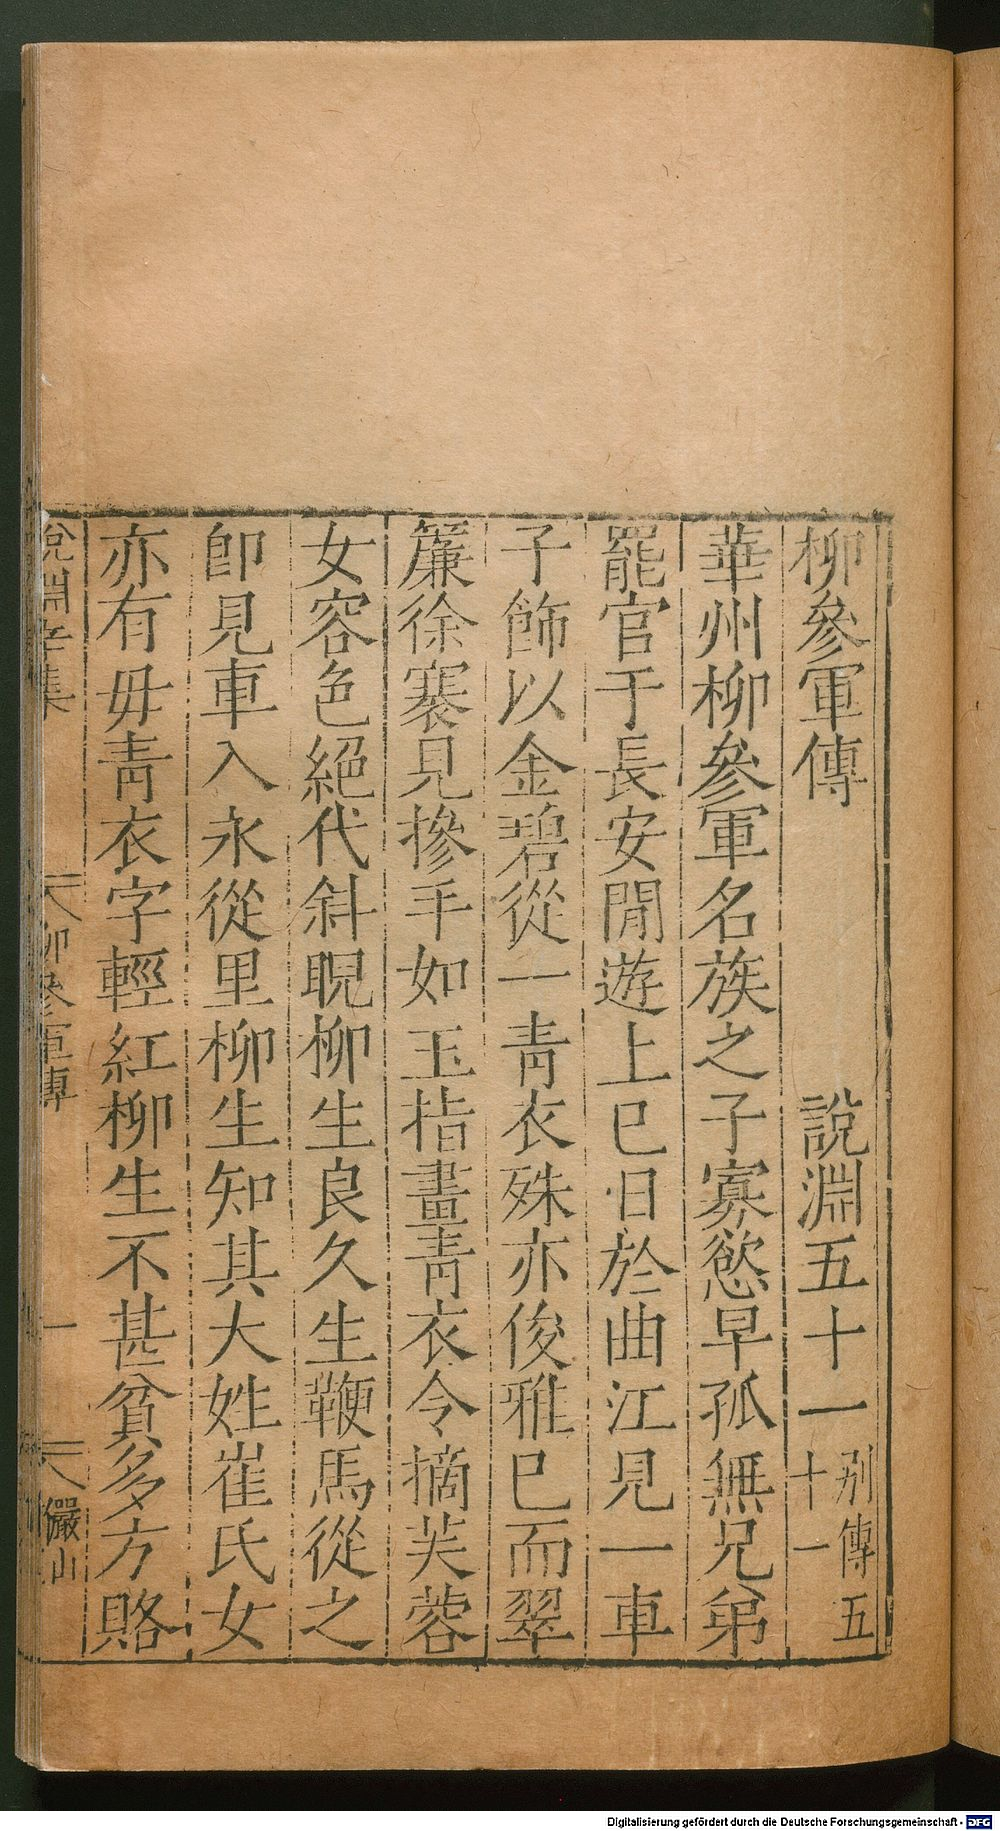 柳參軍傳 說淵五十一 別傳五十一
華州柳參軍名族之子寡慾早孤無兄弟
罷官于長安閒遊上巳日於曲江見一車
子飾以金碧從一青衣殊亦俊雅巳而翠
簾徐褰見摻手如玉指畫青衣令摘芙蓉
女容色絕代斜睨柳生良久生鞭馬從之
卽見車入永從里柳生知其大姓崔氏女
亦有毋青衣字輕紅柳生不甚貧多方賂
說淵辛集 柳參軍傳 一 儼山
Digitalisierung gefördert durch die Deutsche Forschungsgemeinschaft - DFG